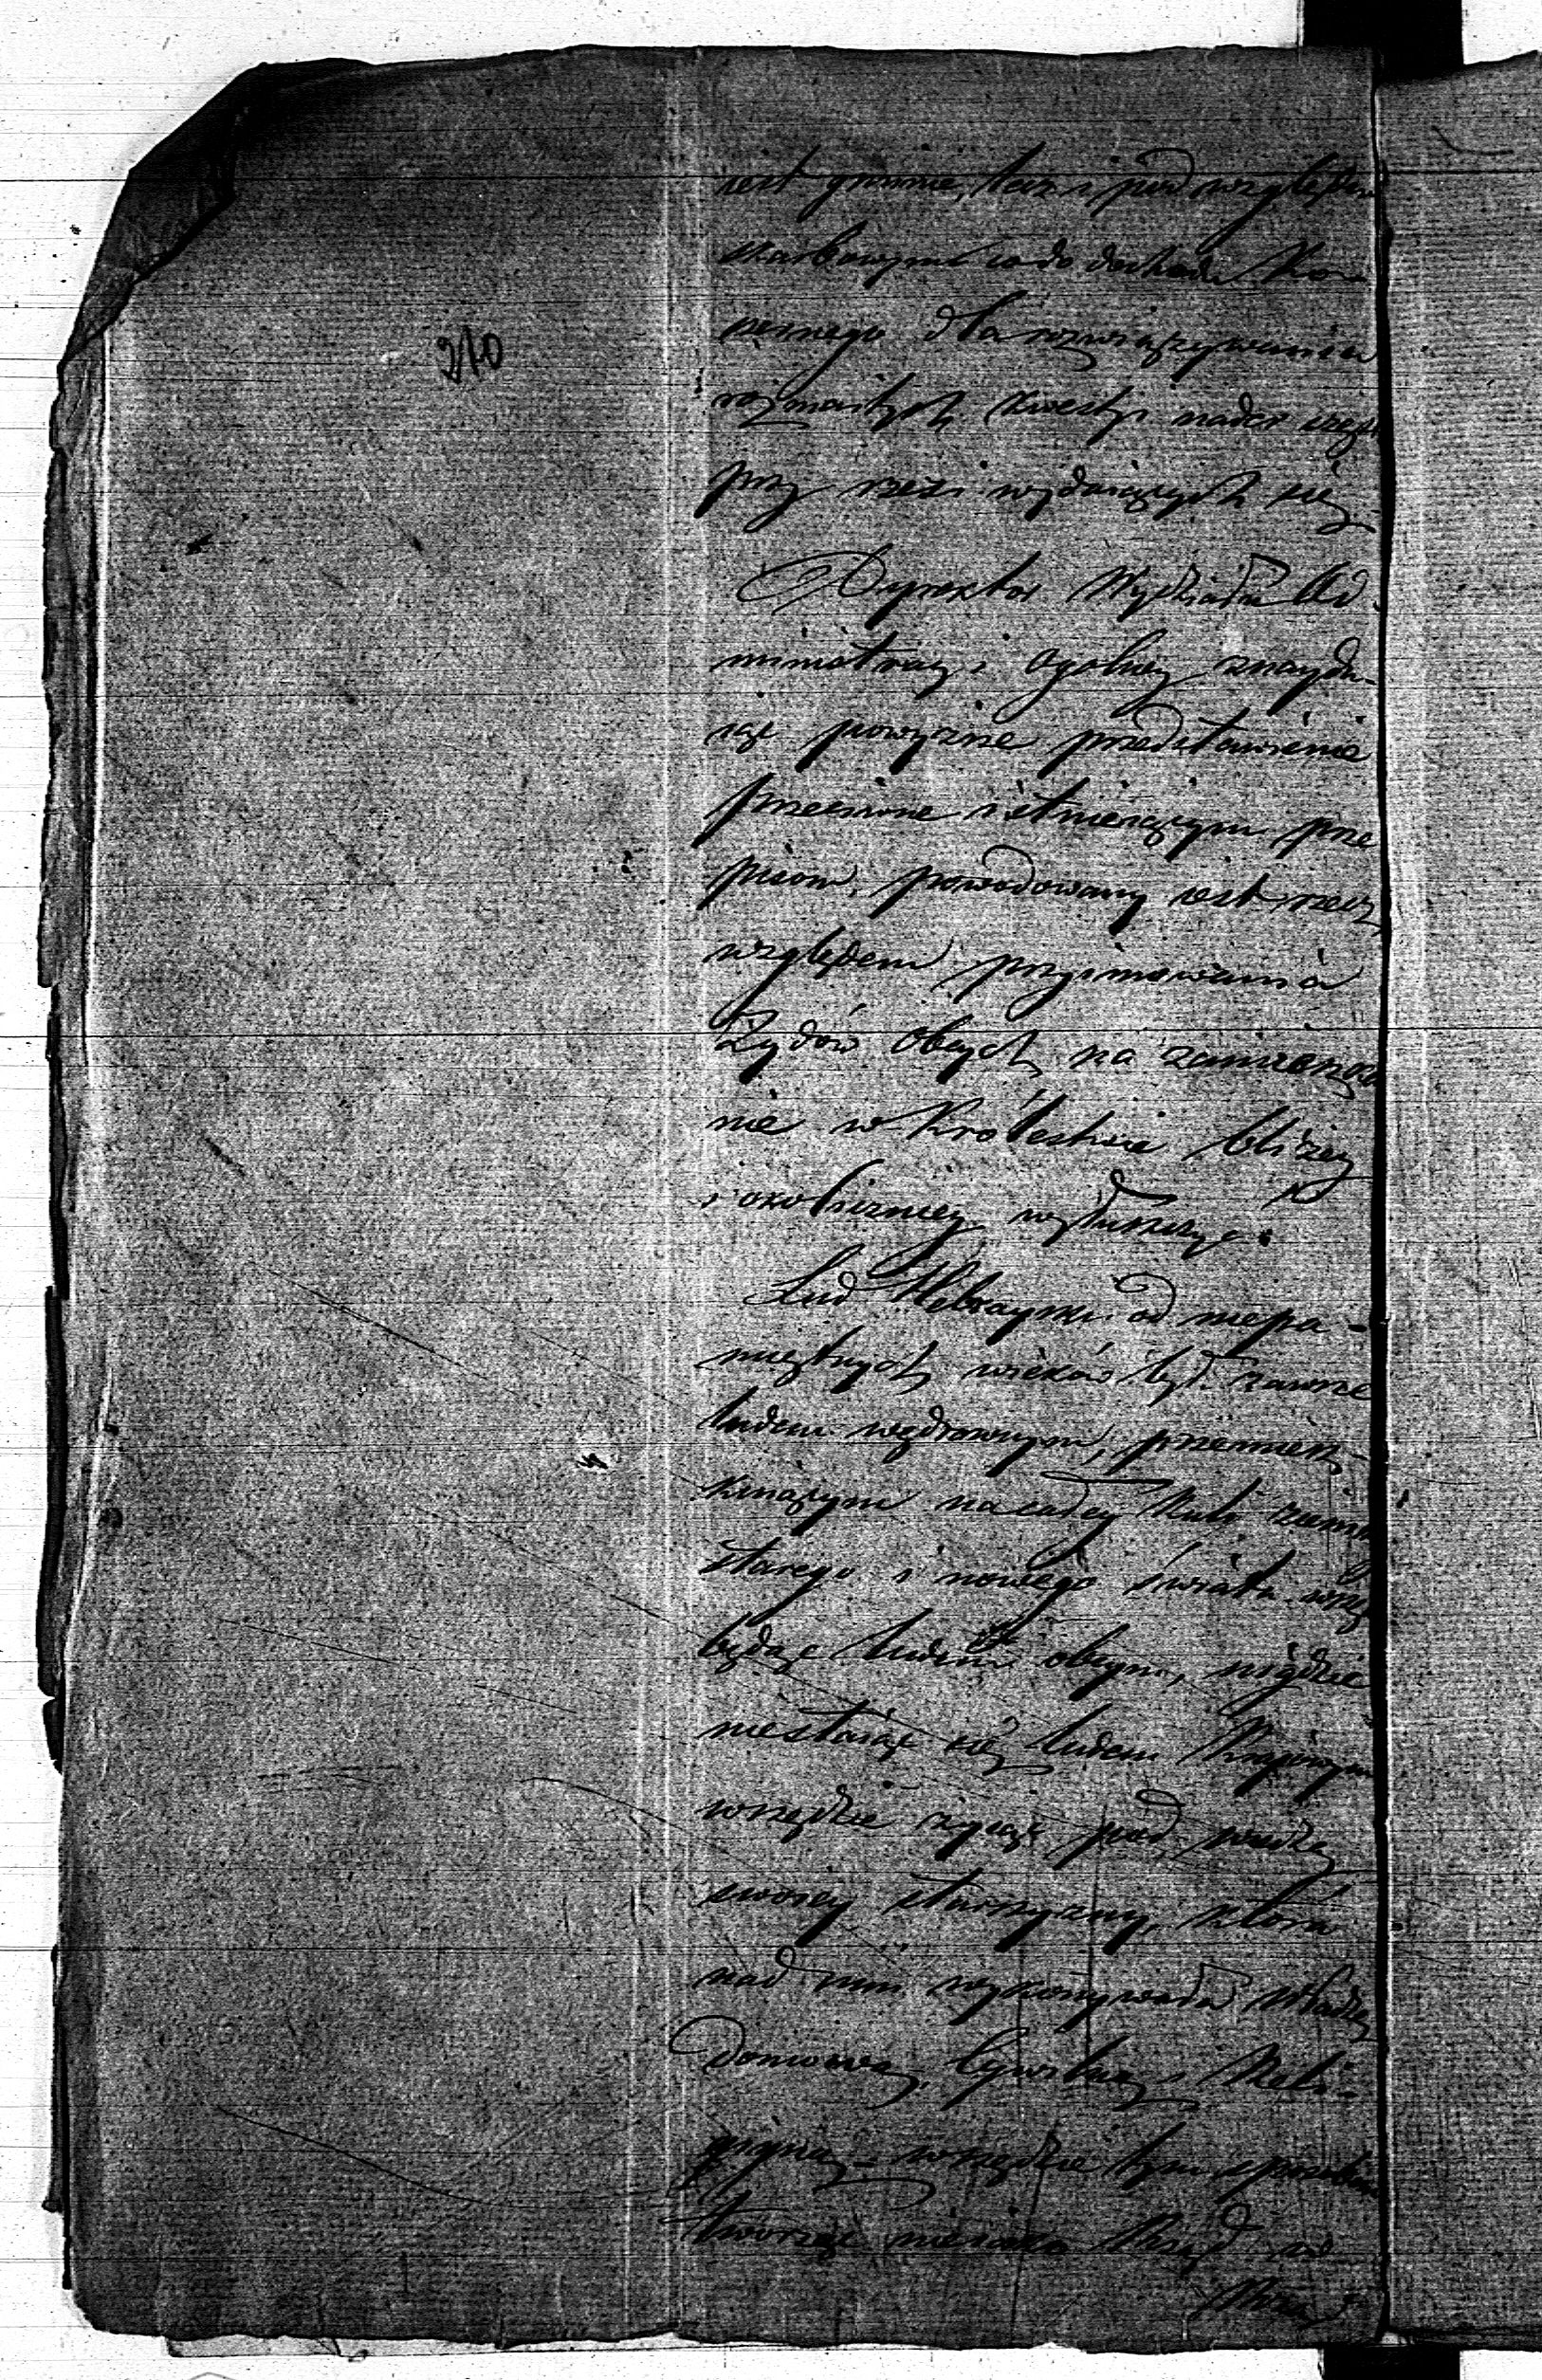 210
iest gminie, lecz i pod względem
skarbowym co do dochodu Ko-
szernego dla rozwiązywania
rozmaitych kwestji nader często
przy rzezi wydaiących się
Dyrektor Wydziału Ad-
ministracyi Ogolney znaydu-
iąc powyższe przedstawienie
przeciwne istnieiącym prze
pisom, powodowany iest rzecz
względem przyimowania
Żydów obcych na zamieszka
nie w Królestwie bliżey
i okoliczniey wyłuszczyć
Lud Hebrayski od niepa-
miętnych wieków był zawsze
ludem wędrownym, przemiesz-
kuiącym na całey kuli ziemi
starego i nowego świata wszę
będąc ludem obcym, nigdzie
niestaiąc się ludem Kraiowym
wszędzie żyiąc pod władzą
swoiey starszyzny, która
nad nim wykonywała władzę
domową, Cywilną i Reli-
giyną – wszędzie tym sposobem
tworząc nieiako Rząd w